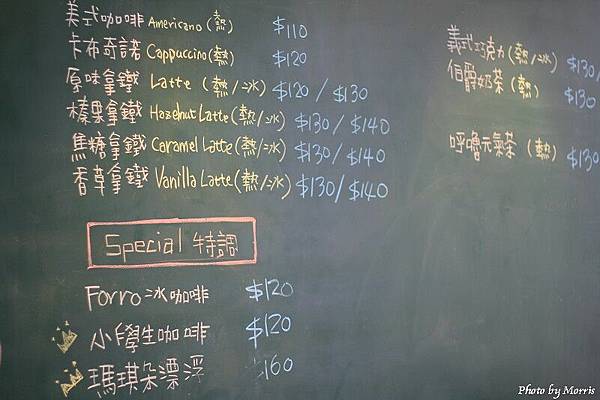 美式咖啡 Americano (熱) $110
卡布奇諾 Cappuccino (熱) $120
原味拿鐵 Latte (熱/冰) $120 / $130
榛果拿鐵 Hazelnut Latte (熱/冰) $130 / $140
焦糖拿鐵 Caramel Latte (熱/冰) $130 / $140
香草拿鐵 Vanilla Latte (熱/冰) $130 / $140
Special 特調
Forro 冰咖啡 $120
小學生咖啡 $120
瑪琪朵漂浮 $160
義式巧克力 (熱/冰) $130/
伯爵奶茶 (熱) $130
呼嚕元氣茶 (熱) $130
Photo by Morris